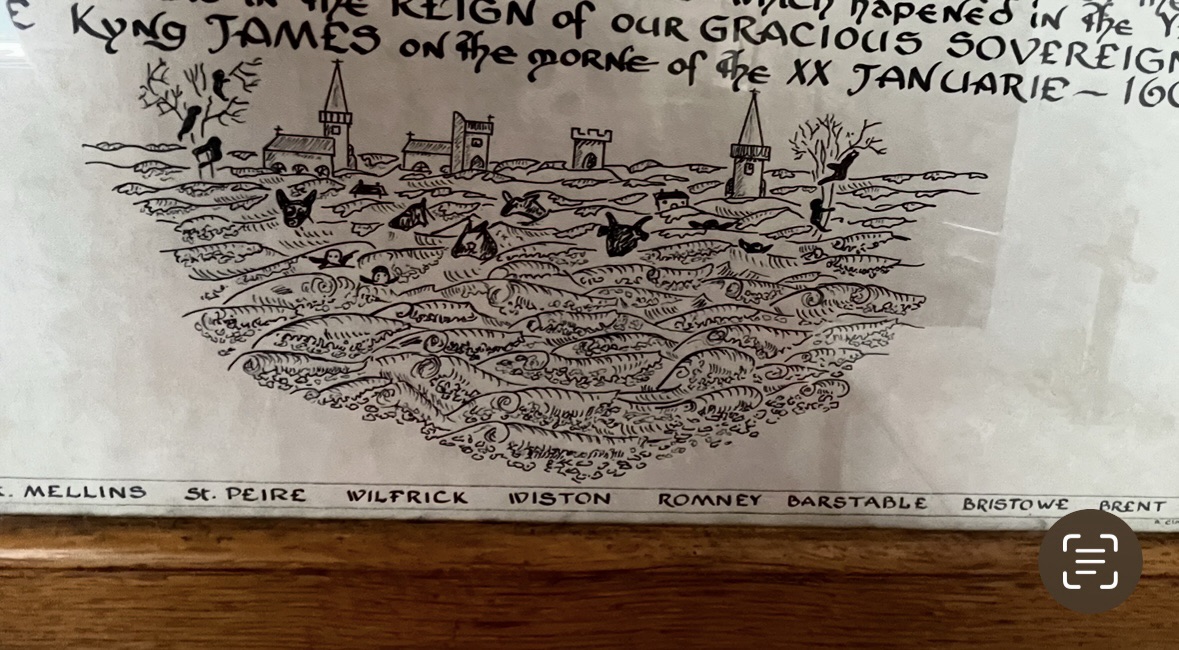 IN THE REIGN of OUR GRACIOUS SOVEREIGN
which hapENED iN the
KYNg JAMES ON the MORNE of the XX JANUARIE ~ 160
MELLINS St. PEIRE WILFRICK WISTON ROMNEY BARSTABLE BRISTOWE BRENT